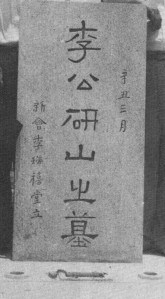 辛丑三月
李公研山之墓
新會李立